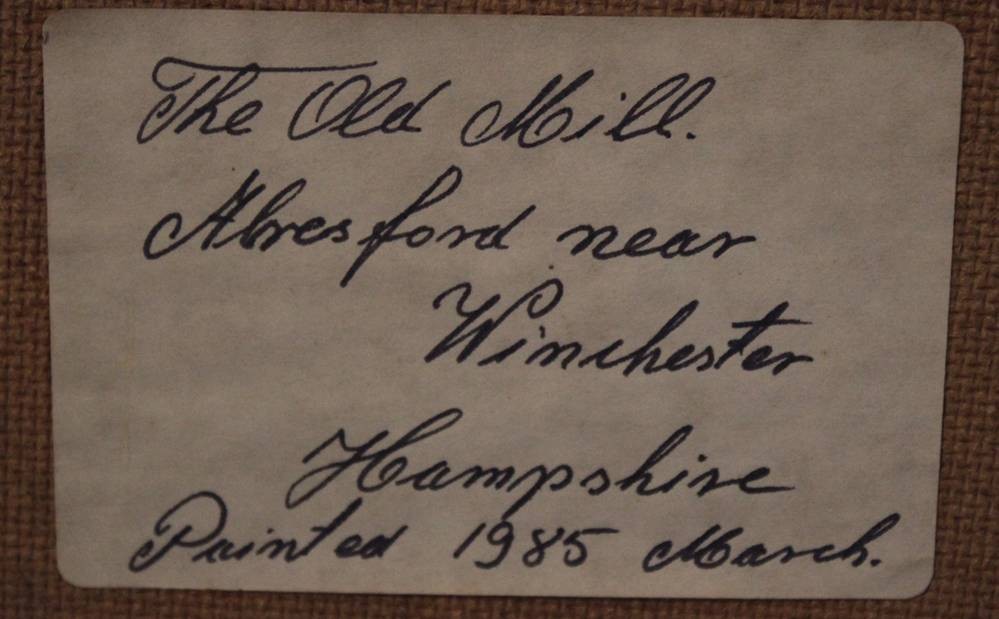 The Old Mill.
Alresford near
Winchester
Hampshire
Painted 1985 March.